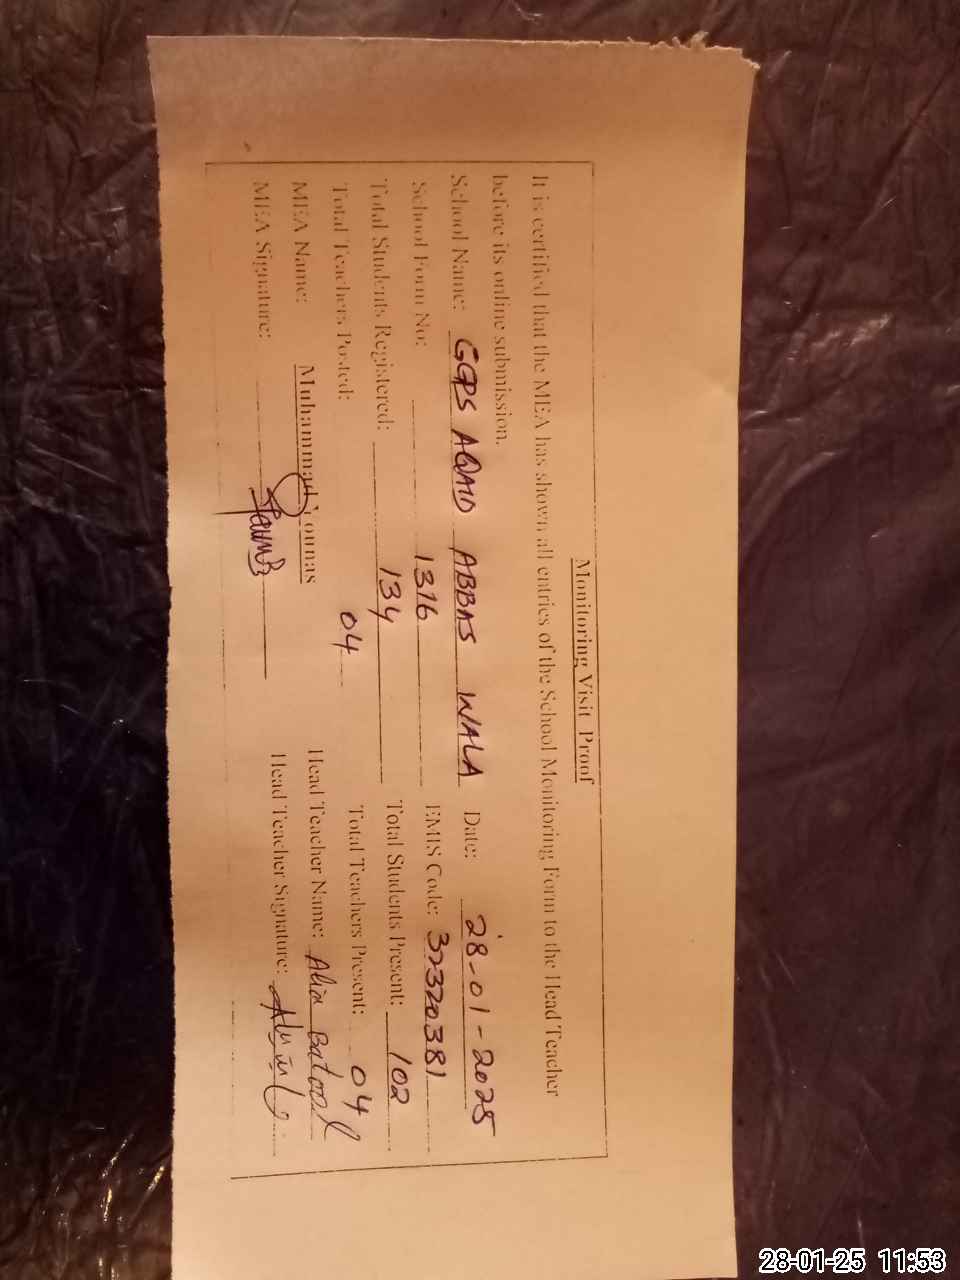 Monitoring Visit Proof
It is certified that the MEA has shown all entries of the School Monitoring Form to the Head Teacher
before its online submission.
School Name: GGPS AQAID ABBAS WALA Date: 28-01-2025
School Form No: 1316 EMIS Code: 37320381
Total Students Registered: 134 Total Students Present: 102
Total Teachers Posted: 04 Total Teachers Present: 04
MEA Name: Muhammad Younas Head Teacher Name: Alia Batool
MEA Signature: Head Teacher Signature:
28-01-25 11:53